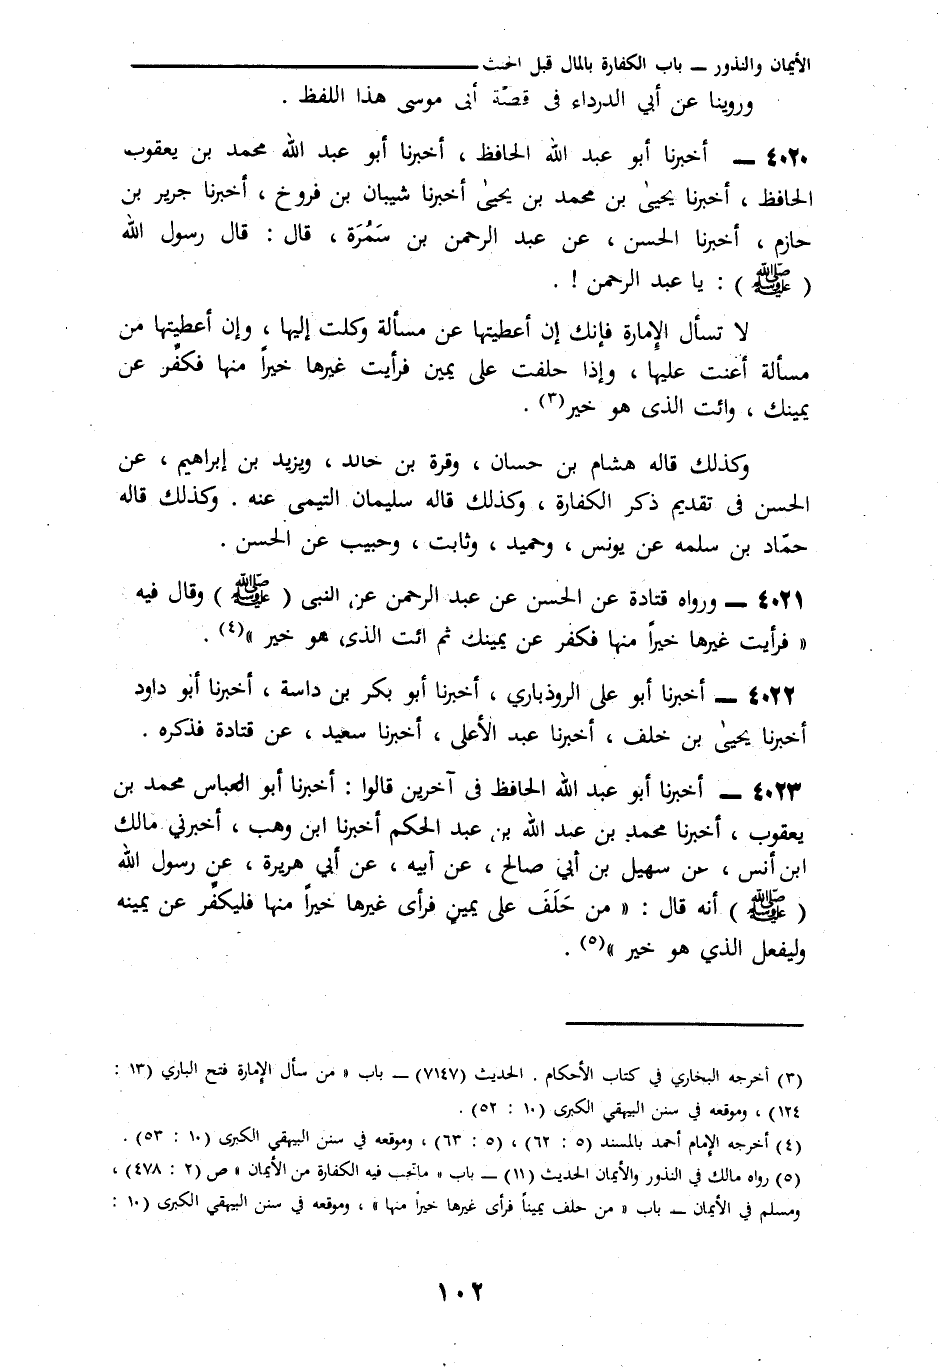 الأيمان والنذور ــ باب الكفارة بالمال قبل الحنث
وروينا عن أبي الدرداء فى قصّة أبى موسى هذا اللفظ .
٤٠٢٠ ــ أخبرنا أبو عبد الله الحافظ ، أخبرنا أبو عبد الله محمد بن يعقوب
الحافظ ، أخبرنا يحيىٰ بن محمد بن يحيىٰ أخبرنا شيبان بن فروخ ، أخبرنا جرير بن
حازم ، أخبرنا الحسن ، عن عبد الرحمن بن سَمُرَة ، قال : قال رسول الله
( ﷺ ) : يا عبد الرحمن ! .
لا تسأل الإمارة فإنك إن أعطيتها عن مسألة وكلت إليها ، وإن أعطيتها من
مسألة أعنت عليها ، وإذا حلفت على يمين فرأيت غيرها خيراً منها فكفِّر عن
يمينك ، وائت الذى هو خير(٣) .
وكذلك قاله هشام بن حسان ، وقرة بن خالد ، ويزيد بن إبراهيم ، عن
الحسن فى تقديم ذكر الكفارة ، وكذلك قاله سليمان التيمى عنه . وكذلك قاله
حمّاد بن سلمه عن يونس ، وحميد ، وثابت ، وحبيب عن الحسن .
٤٠٢١ ــ ورواه قتادة عن الحسن عن عبد الرحمن عن النبى ( ﷺ ) وقال فيه
« فرأيت غيرها خيراً منها فكفر عن يمينك ثم ائت الذى هو خير »(٤) .
٤٠٢٢ ــ أخبرنا أبو على الروذباري ، أخبرنا أبو بكر بن داسة ، أخبرنا أبو داود
أخبرنا يحيىٰ بن خلف ، أخبرنا عبد الأعلى ، أخبرنا سعيد ، عن قتادة فذكره .
٤٠٢٣ ــ أخبرنا أبو عبد الله الحافظ فى آخرين قالوا : أخبرنا أبو العباس محمد بن
يعقوب ، أخبرنا محمد بن عبد الله بن عبد الحكم أخبرنا ابن وهب ، أخبرني مالك
ابن أنس ، عن سهيل بن أبي صالح ، عن أبيه ، عن أبي هريرة ، عن رسول الله
( ﷺ ) أنه قال : « من حَلَفَ على يمينٍ فرأى غيرها خيراً منها فليكفِّر عن يمينه
وليفعل الذي هو خير »(٥) .
(٣) أخرجه البخاري في كتاب الأحكام . الحديث (٧١٤٧) ــ باب « من سأل الإمارة فتح الباري (١٣ :
١٢٤) ، وموقعه في سنن البيهقي الكبرى (١٠ : ٥٢) .
(٤) أخرجه الإمام أحمد بالمسند (٥ : ٦٢) ، (٥ : ٦٣) ، وموقعه في سنن البيهقي الكبرى (١٠ : ٥٣) .
(٥) رواه مالك في النذور والأيمان الحديث (١١) ــ باب « ماتجب فيه الكفارة من الأيمان » ص (٢ : ٤٧٨) ،
ومسلم في الأيمان ــ باب « من حلف يميناً فرأى غيرها خيراً منها » ، وموقعه في سنن البيهقي الكبرى (١٠ :
١٠٢